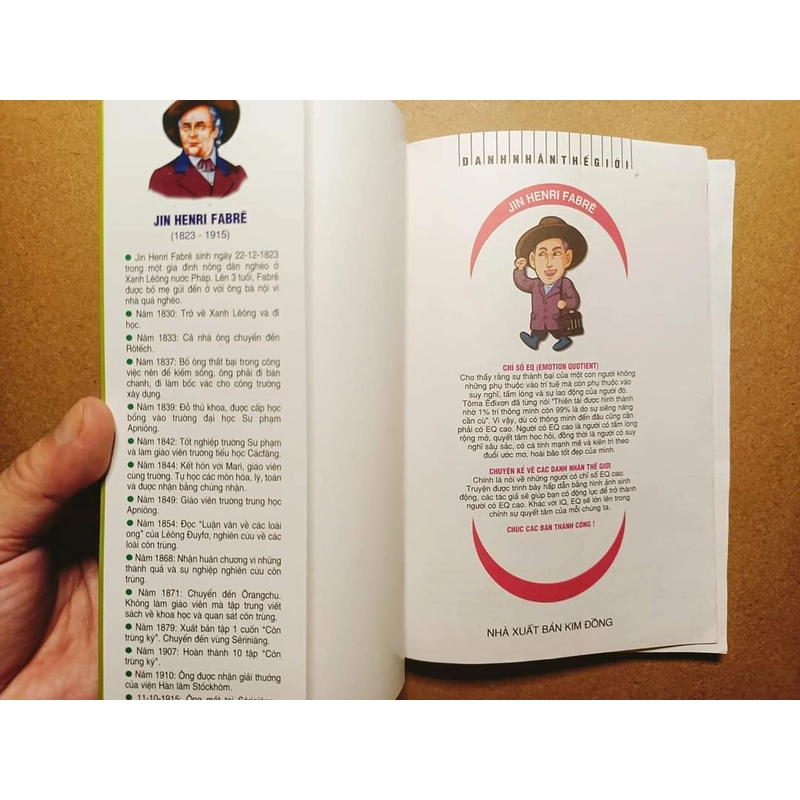 JIN HENRI FABRÊ
(1823 - 1915)
Jin Henri Fabrê sinh ngày 22-12-1823
trong một gia đình nông dân nghèo ở
Xanh Lêông nước Pháp. Lên 3 tuổi, Fabrê
được bố mẹ gửi đến ở với ông bà nội vì
nhà quá nghèo.
Năm 1830: Trở về Xanh Lêông và đi
học.
Năm 1833: Cả nhà ông chuyển đến
Rôtếch.
Năm 1837: Bố ông thất bại trong công
việc nên để kiếm sống, ông phải đi bán
chanh, đi làm bốc vác cho công trường
xây dựng.
Năm 1839: Đỗ thủ khoa, được cấp học
bổng vào trường đại học Sư phạm
Apniông.
Năm 1842: Tốt nghiệp trường Sư phạm
và làm giáo viên trường tiểu học Cácfăng.
Năm 1844: Kết hôn với Mari, giáo viên
cùng trường. Tự học các môn hóa, lý, toán
và được nhận bằng chứng nhận.
Năm 1849: Giáo viên trường trung học
Apniông.
Năm 1854: Đọc "Luận văn về các loài
ong" của Lêông Đuyfo, nghiên cứu về các
loài côn trùng.
Năm 1868: Nhận huân chương vì những
thành quả và sự nghiệp nghiên cứu côn
trùng.
Năm 1871: Chuyển đến Ôrangchu.
Không làm giáo viên mà tập trung viết
sách về khoa học và quan sát côn trùng.
Năm 1879: Xuất bản tập 1 cuốn "Côn
trùng ký". Chuyển đến vùng Sêriniăng.
Năm 1907: Hoàn thành 10 tập "Côn
trùng ký".
Năm 1910: Ông được nhận giải thưởng
của viện Hàn lâm Stốckhôm.
11-10-1915: Ông mất tại Sêriniăng.
DANH NHÂN THẾ GIỚI
JIN HENRI FABRÊ
CHỈ SỐ EQ (EMOTION QUOTIENT)
Cho thấy rằng sự thành bại của một con người không
những phụ thuộc vào trí tuệ mà còn phụ thuộc vào
suy nghĩ, tấm lòng và sự lao động của người đó.
Tôma Êdixon đã từng nói "Thiên tài được hình thành
nhờ 1% trí thông minh còn 99% là do sự siêng năng
cần cù". Vì vậy, dù có thông minh đến đâu cũng cần
phải có EQ cao. Người có EQ cao là người có tấm lòng
rộng mở, quyết tâm học hỏi, đồng thời là người có suy
nghĩ sâu sắc, có cá tính mạnh mẽ và kiên trì theo
đuổi ước mơ, hoài bão tốt đẹp của mình.
CHUYỆN KỂ VỀ CÁC DANH NHÂN THẾ GIỚI
Chính là nói về những người có chỉ số EQ cao.
Truyện được trình bày hấp dẫn bằng hình ảnh sinh
động, các tác giả sẽ giúp bạn có động lực để trở thành
người có EQ cao. Khác với IQ, EQ sẽ lớn lên trong
chính sự quyết tâm của mỗi chúng ta.
CHÚC CÁC BẠN THÀNH CÔNG !
NHÀ XUẤT BẢN KIM ĐỒNG